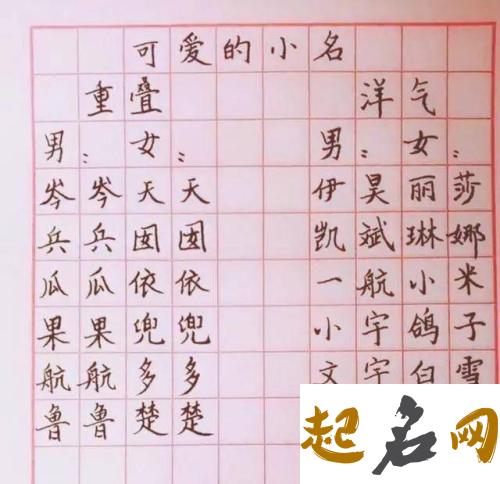 可爱的小名
重叠 洋气
男：女： 男：女：
岑岑天天 伊昊丽莎
兵兵囡囡 凯斌琳娜
瓜瓜依依 一航小米
果果兜兜 小宇鸽子
航航多多 文宇白雪
鲁鲁楚楚
起名网